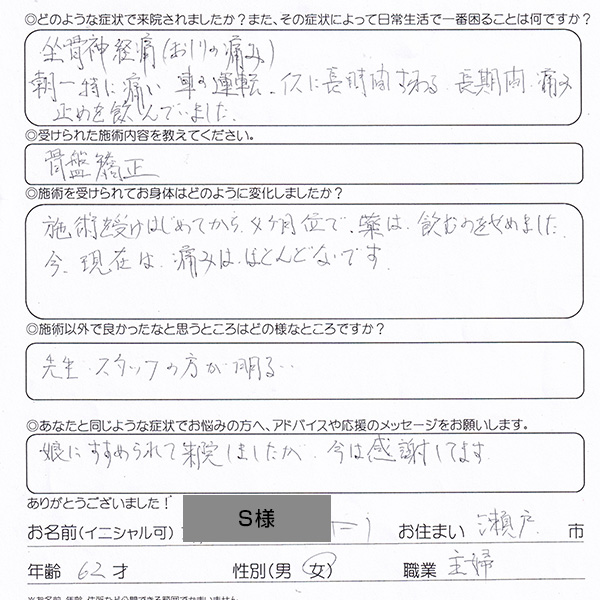 ◎どのような症状で来院されましたか？また、その症状によって日常生活で一番困ることは何ですか？
坐骨神経痛(おしりの痛み)
朝一特に痛い 車の運転、イスに長時間すわる 長期間 痛み
止めを飲んでいました。
◎受けられた施術内容を教えてください。
骨盤矯正
◎施術を受けられてお身体はどのように変化しましたか？
施術を受けはじめてから、4ヶ月位で、薬は、飲むのをやめました。
今、現在は、痛みは、ほとんどないです
◎施術以外で良かったなと思うところはどの様なところですか？
先生・スタッフの方が明る‥
◎あなたと同じような症状でお悩みの方へ、アドバイスや応援のメッセージをお願いします。
娘にすすめられて来院しましたが、今は感謝してます
ありがとうございました！
お名前(イニシャル可) S様 お住まい 瀬戸 市
年齢 62 才 性別(男 女) 職業 主婦